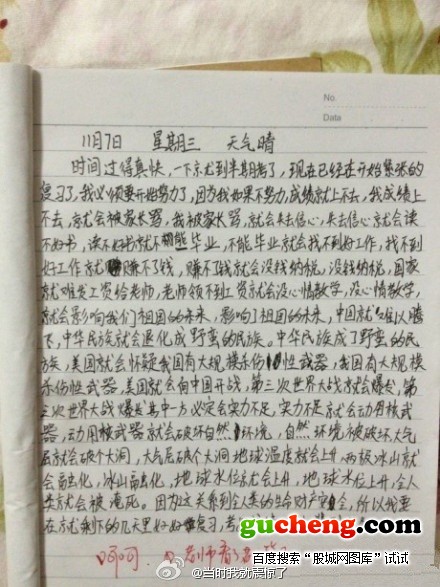 No.
Date
11月7日 星期三 天气晴
时间过得真快,一下就到半期考了,现在已经在开始紧张的
复习了,我必须要开始努力了,因为我如果不努力,成绩就上不去,我成绩上
不去,就会被家长骂,我被家长骂,就会失去信心,失去信心就会读
不好书,读不好书就不能毕业,不能毕业就会找不到好工作,找不到
好工作就赚不了钱,赚不了钱就会没钱纳税,没钱纳税,国家
就难发工资给老师,老师领不到工资就会没心情教学,没心情教学,
就会影响我们祖国的未来,影响了祖国的未来,中国就难以腾
飞,中华民族就会退化成野蛮的民族。中华民族成了野蛮的民
族,美国就会怀疑我国有大规模杀伤性武器,我国有大规模
杀伤性武器,美国就会向中国开战,第三次世界大战就会爆发,第
三次世界大战爆发其中一方必定会实力不足,实力不足就会动用核武
器,动用核武器就会破坏自然环境,自然环境被破坏,大气
层就会破个大洞,大气层破个大洞地球温度就会上升,两极冰山就
会融化,冰山融化,地球水位就会上升,地球水位上升,全人
类就会被淹死。因为这关系到全人类的生命财产安全,所以我要
在就剩下的几天里好好复习,考
呵呵.
gucheng.com
@当时我就震惊了
百度搜索“股城网图库”试试